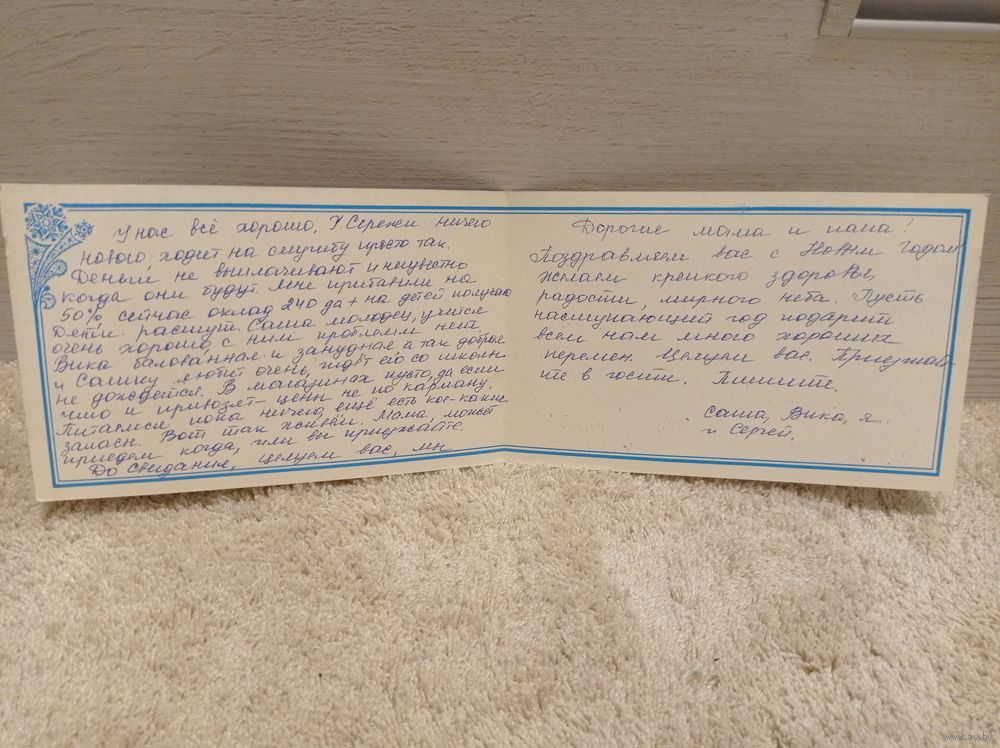 У нас всё хорошо. У Сережи ничего
нового, ходит на службу просто так.
Деньги не выплачивают и неизвестно
когда они будут. Мне прибавили на
50% сейчас оклад 240 да + на детей получаю
Дети растут. Саша молодец, учится
очень хорошо с ним проблем нет.
Вика балованная и занудная а так добрая
и Сашку любит очень, ждёт его со школы
не дождётся. В магазинах пусто, да если
что и привозят – цены не по карману.
Питаемся пока ничего, ещё есть кое-какие
запасы. Вот так живём. Мама, может
приедем когда, или вы приезжайте.
До свидания, целуем вас, мы
Дорогие мама и папа!
Поздравляем вас с Новым годом
Желаем крепкого здоровье,
радости, мирного неба. Пусть
наступающий год подарит
всем нам много хороших
перемен. Целуем вас. Приезжай-
те в гости. Пишите.
Саша, Вика, я
и Сергей.
www.ay.by